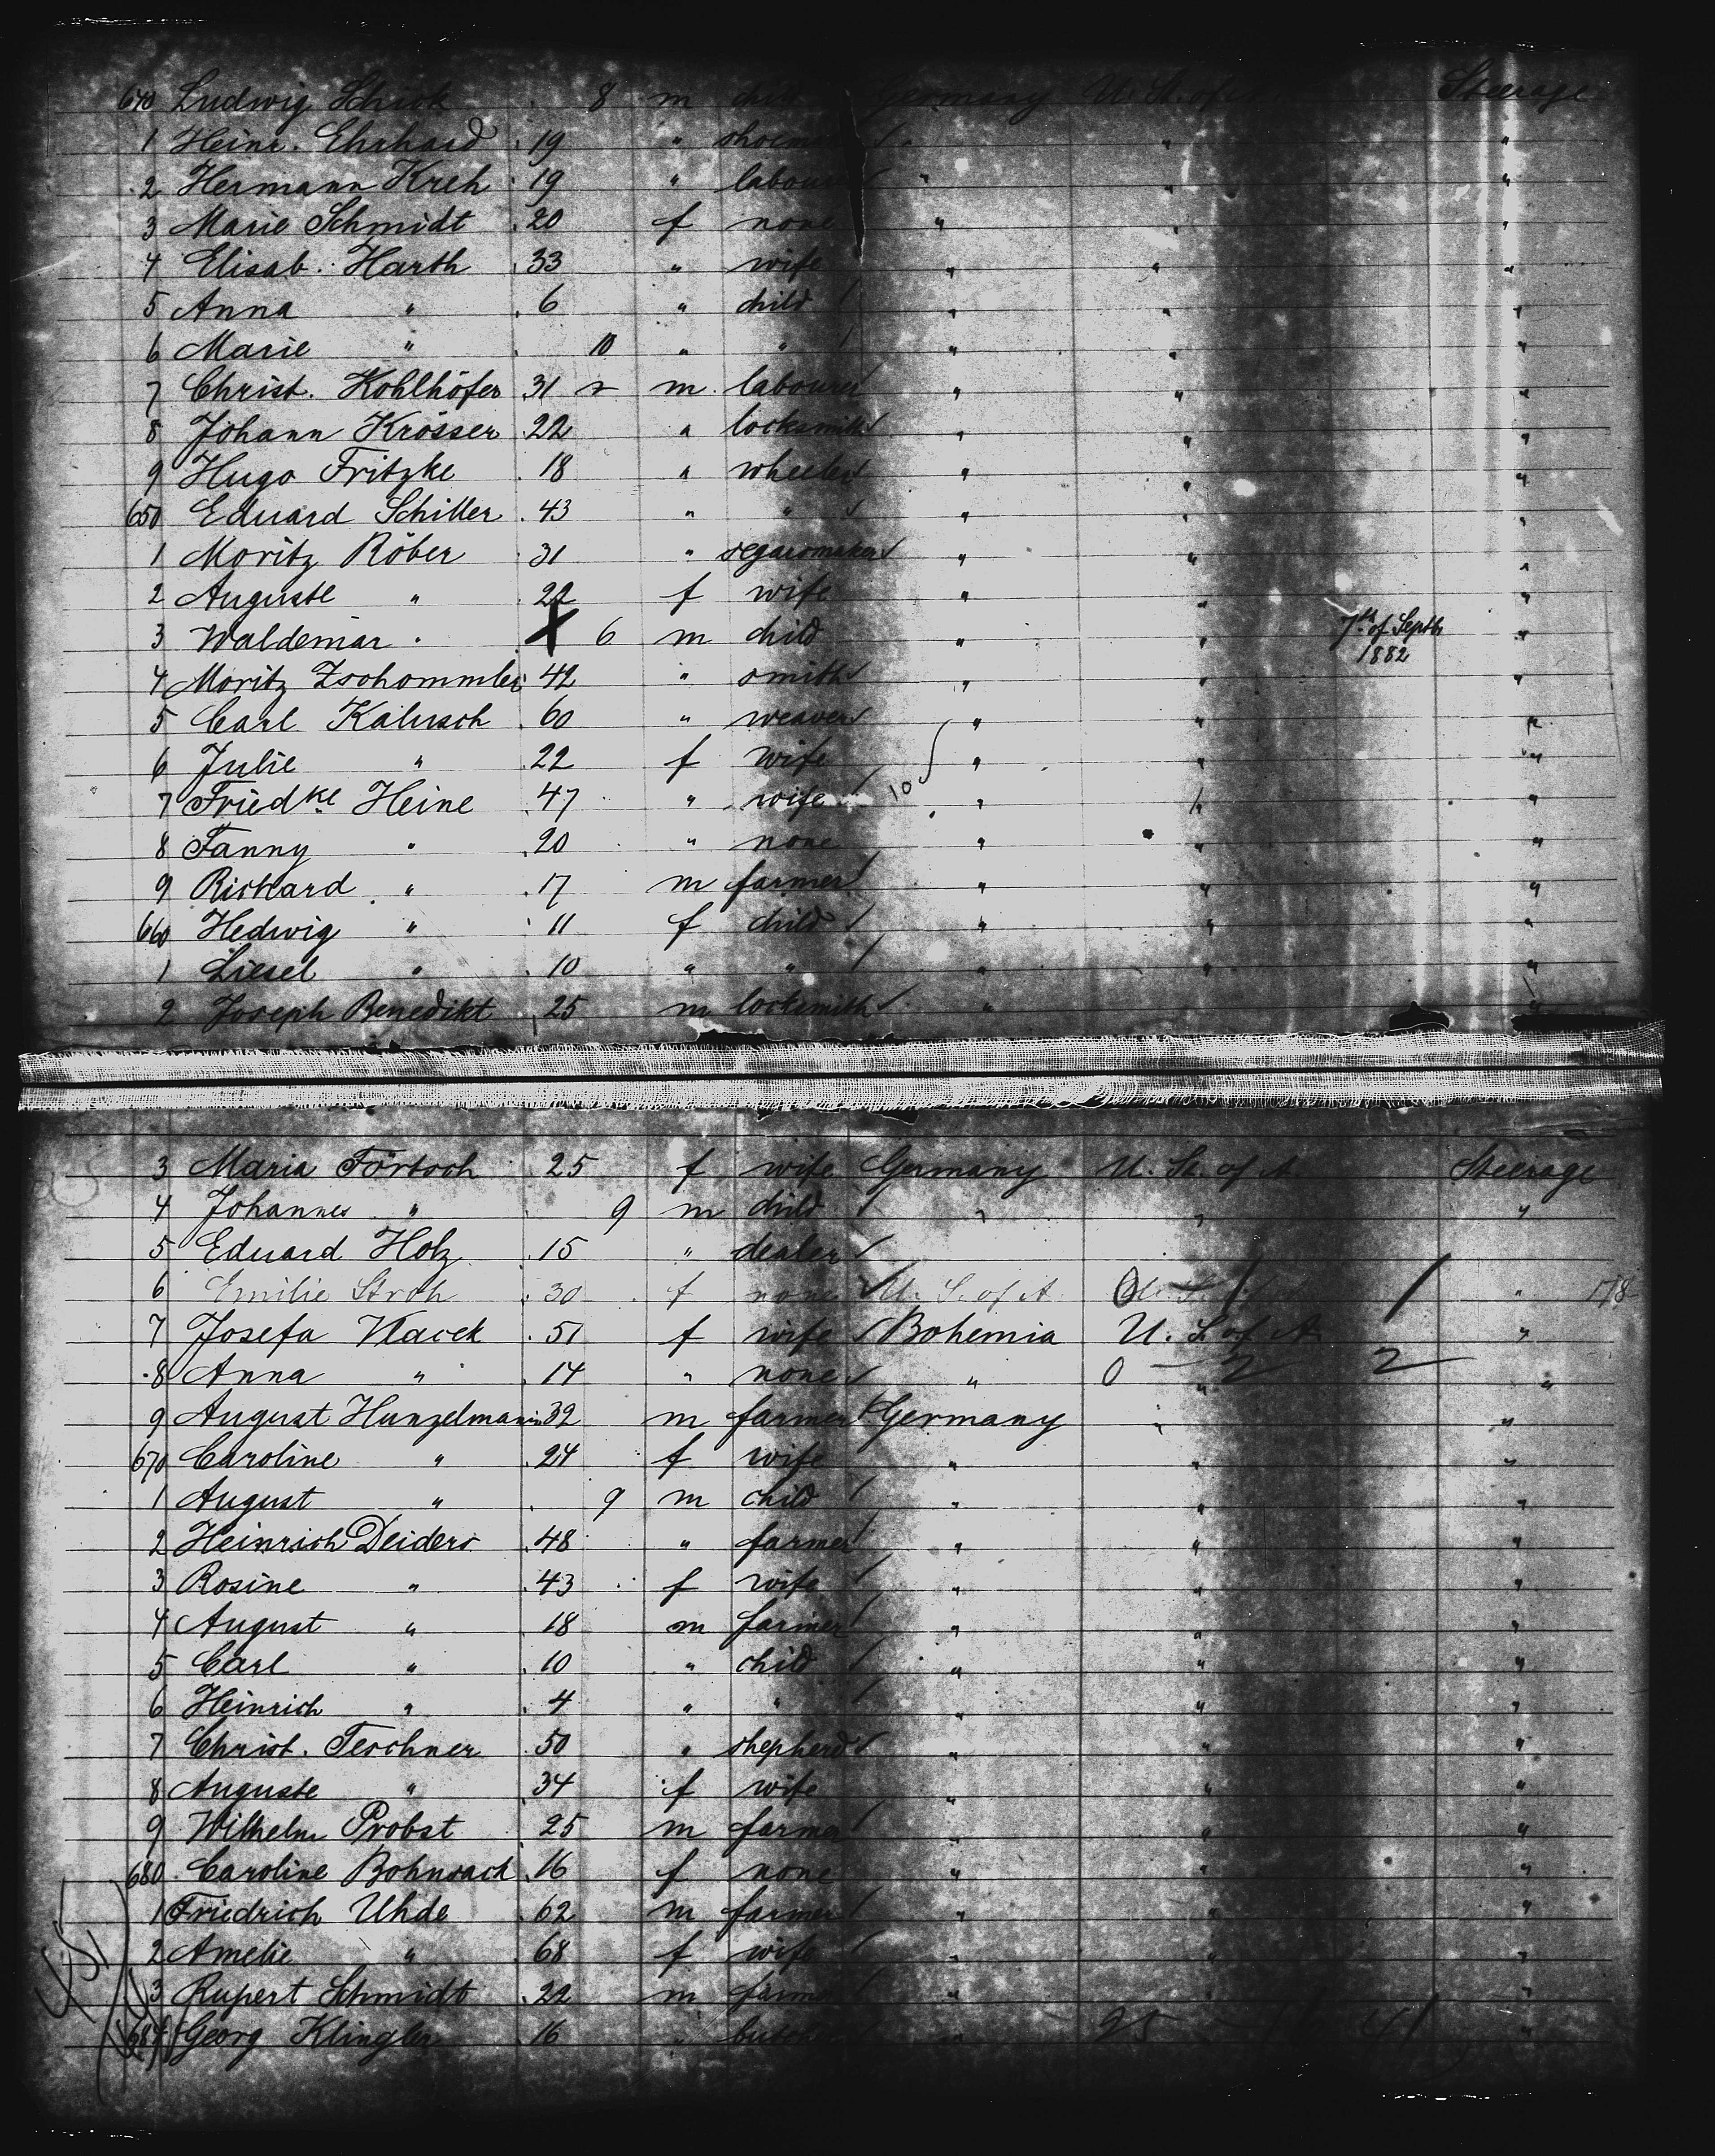 640 Ludwig Schick . 8 m child Germany U. St. of Steerage
1 Heinr. Ehrhard . 19 " " " "
2 Hermann Kreh . 19 " labourer " " "
3 Marie Schmidt . 20 f none " " "
4 Elisab. Harth . 33 " wife " " "
5 Anna " . 6 " child " " "
6 Marie " . 10 " " " " "
7 Christ. Kohlhöfer 31 m labourer " " "
8 Johann Krösser . 22 " locksmith " " "
9 Hugo Fritzke . 18 " wheeler " " "
650 Eduard Schiller . 43 " " " " "
1 Moritz Röber . 31 " segarsmaker " " "
2 Auguste " . 22 f wife " " "
3 Waldemar " . X 6 m child " " 7th of Septbr 1882 "
4 Moritz Zschommler 42 " smith " " "
5 Carl Kalusch . 60 " weaver " " "
6 Julie " . 22 f wife " " "
7 Friedke Heine . 47 " wife 10 " " "
8 Fanny " . 20 " none " " "
9 Richard " . 17 m farmer " " "
660 Hedwig " . 11 f child " " "
1 Liesel " . 10 " " " " "
2 Joseph Benedikt . 25 m locksmith " "
3 Maria Förtsch . 25 f wife Germany U. St. of A Steerage
4 Johannes " . 9 m child " " "
5 Eduard Holz . 15 " dealer
6 Emilie Stroh . 30 f none U. S. of A. " 178
7 Josefa Vlacek . 51 f wife Bohemia U. S. of A. "
8 Anna " . 14 " none " 0 — 2 2 "
9 August Hunzelmann 32 m farmer Germany " "
670 Caroline " . 24 f wife " " "
1 August " . 9 m child " " "
2 Heinrich Deiders . 48 " farmer " " "
3 Rosine " . 43 f wife " " "
4 August " . 18 m farmer " " "
5 Carl " . 10 " child " " "
6 Heinrich " . 4 " " " " "
7 Christ. Teschner . 50 " shepherd " " "
8 Auguste " . 34 f wife " " "
9 Wilhelm Probst . 25 m farmer " " "
680 Caroline Bohnsack . 16 f none " " "
1 Friedrich Uhde . 62 m farmer " " "
2 Amelie " . 68 f wife " " "
3 Rupert Schmidt . 22 m farmer " "
684 Georg Klingler . 16 " "